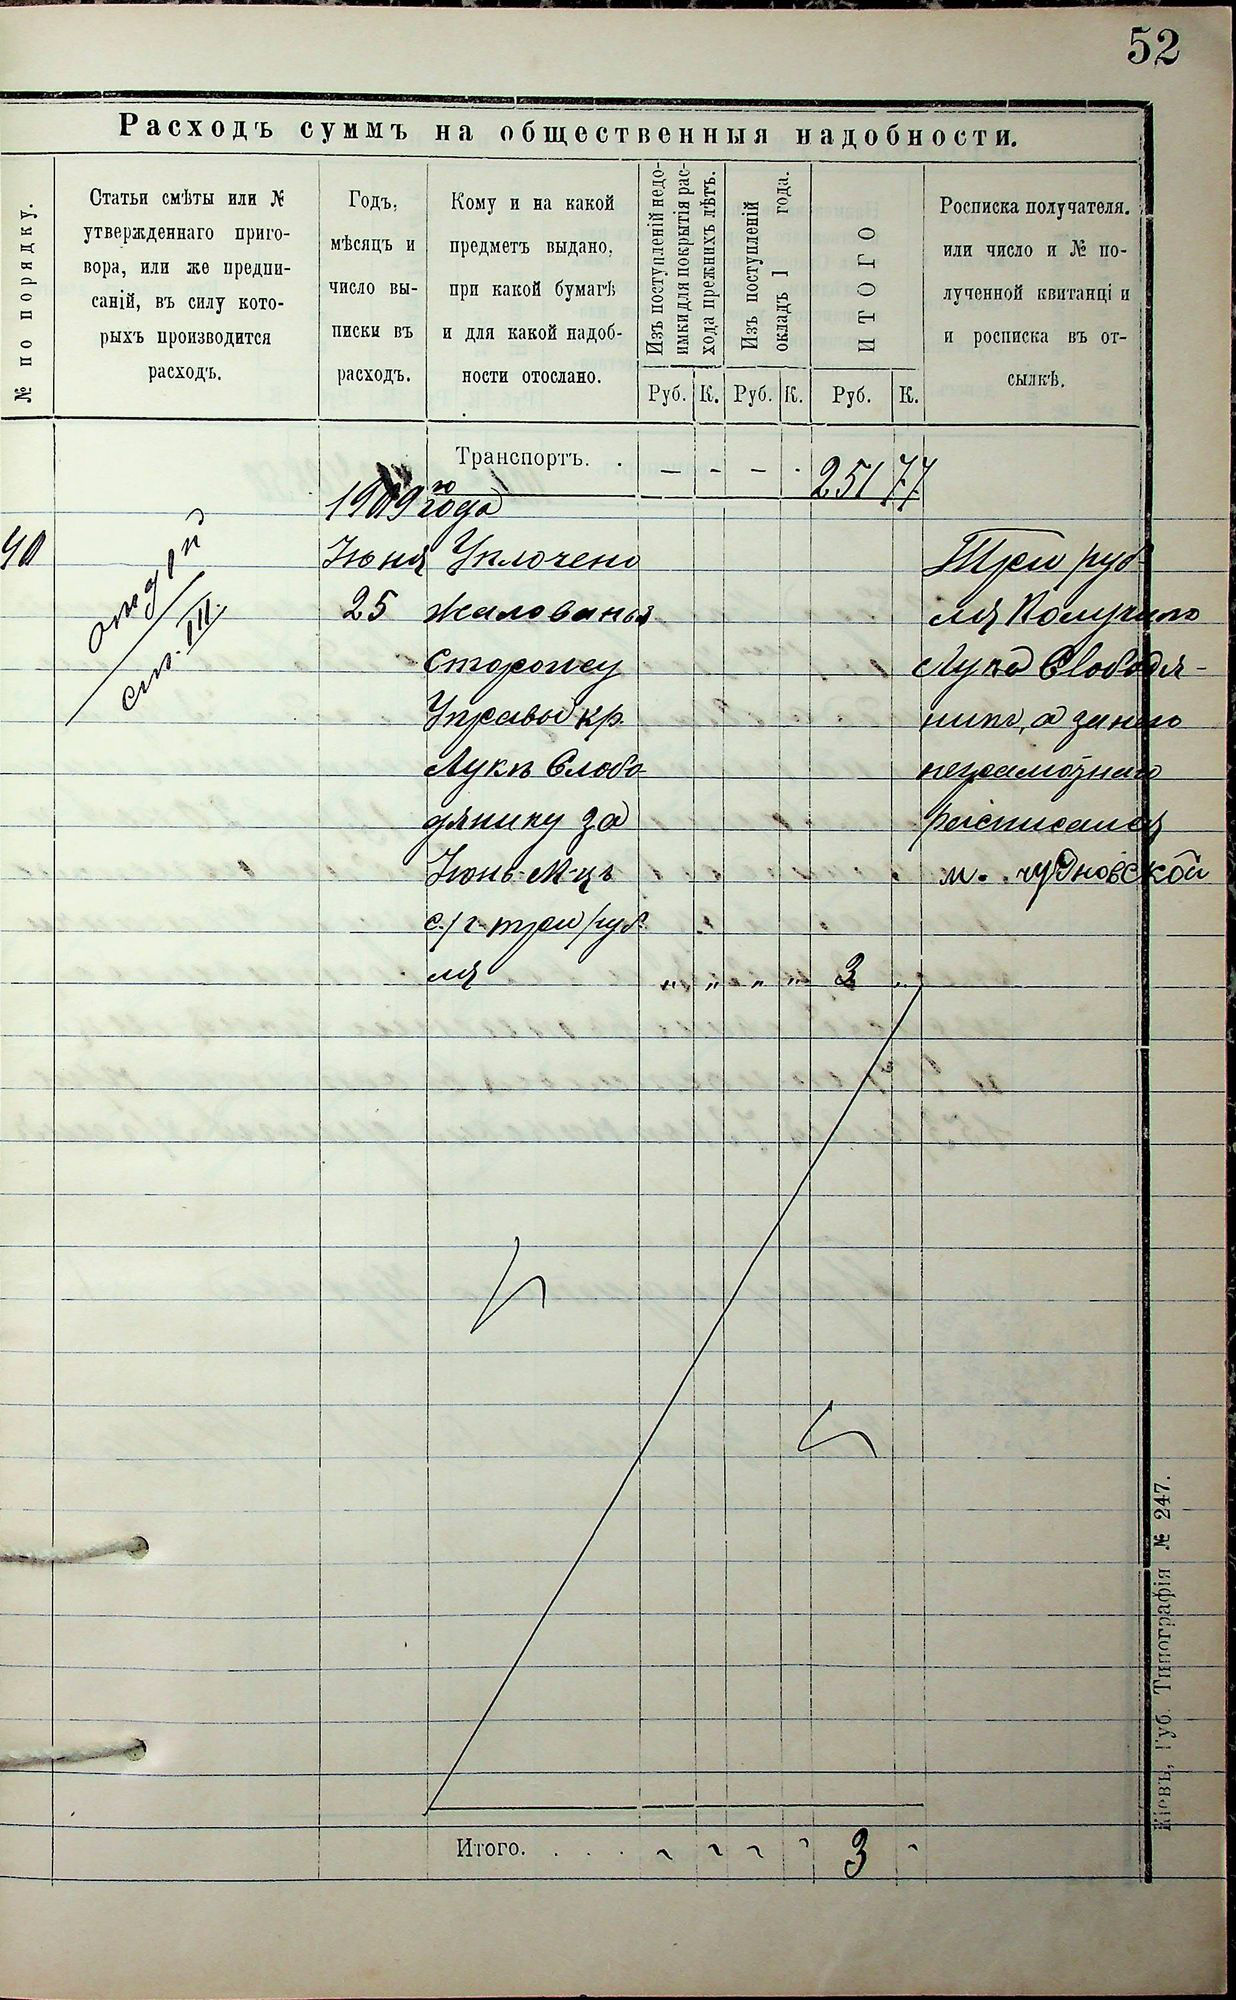 52
Расходъ суммъ на общественныя надобности.
№ по порядку.
Статьи смѣты или №
утвержденнаго приго-
вора, или же предпи-
саній, въ силу кото-
рыхъ производится
расходъ.
Годъ,
мѣсяцъ и
число вы-
писки въ
расходъ.
Кому и на какой
предметъ выдано,
при какой бумагѣ
и для какой надоб-
ности отослано.
Изъ поступленій недо-
имки для покрытія рас-
хода прежнихъ лѣтъ.
Руб. К.
Изъ поступленій
окладъ 1 года.
Руб. К.
ИТОГО
Руб. К.
Росписка получателя.
или число и № по-
лученной квитанці и
и росписка въ от-
сылкѣ.
Транспортъ. . – – – · 251 77
1909 го года
40
отдѣл
ст. III.
Іюня
25
Уплочено
жалованья
Сторожу
Управы кр.
Лукѣ Слобо-
дянику за
Іюнь-м-цъ
с/г три руб-
ля „ „ „ „ 3 „
Три руб-
ля Получилъ
Лука Слободя-
никъ, а за него
неграмотнаго
росписался
м. чудновской
Итого. . . . . 3
Кіевъ, Губ. Типографія № 247.